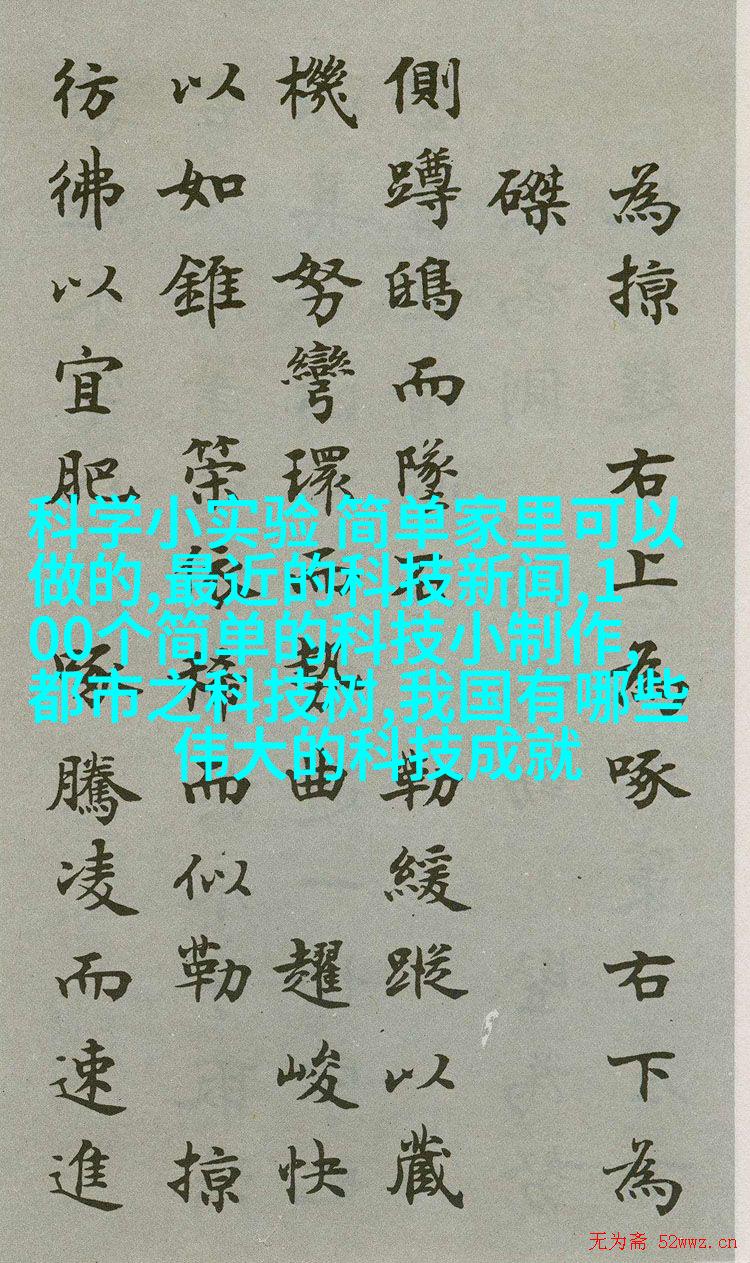 為掠 右上為啄 右下為
磔
側蹲鴟而墜石 勒緩蹤以藏
機 努彎環而勢曲 趯峻快
以如錐 策依稀而似勒 掠
彷彿以宜肥 啄騰凌而速進
科学小实验 简单家里可以
做的,最近的科技新闻,1
00个简单的科技小制作,
都市之科技树,我国有哪些
伟大的科技成就
无为斋 52wwz.cn